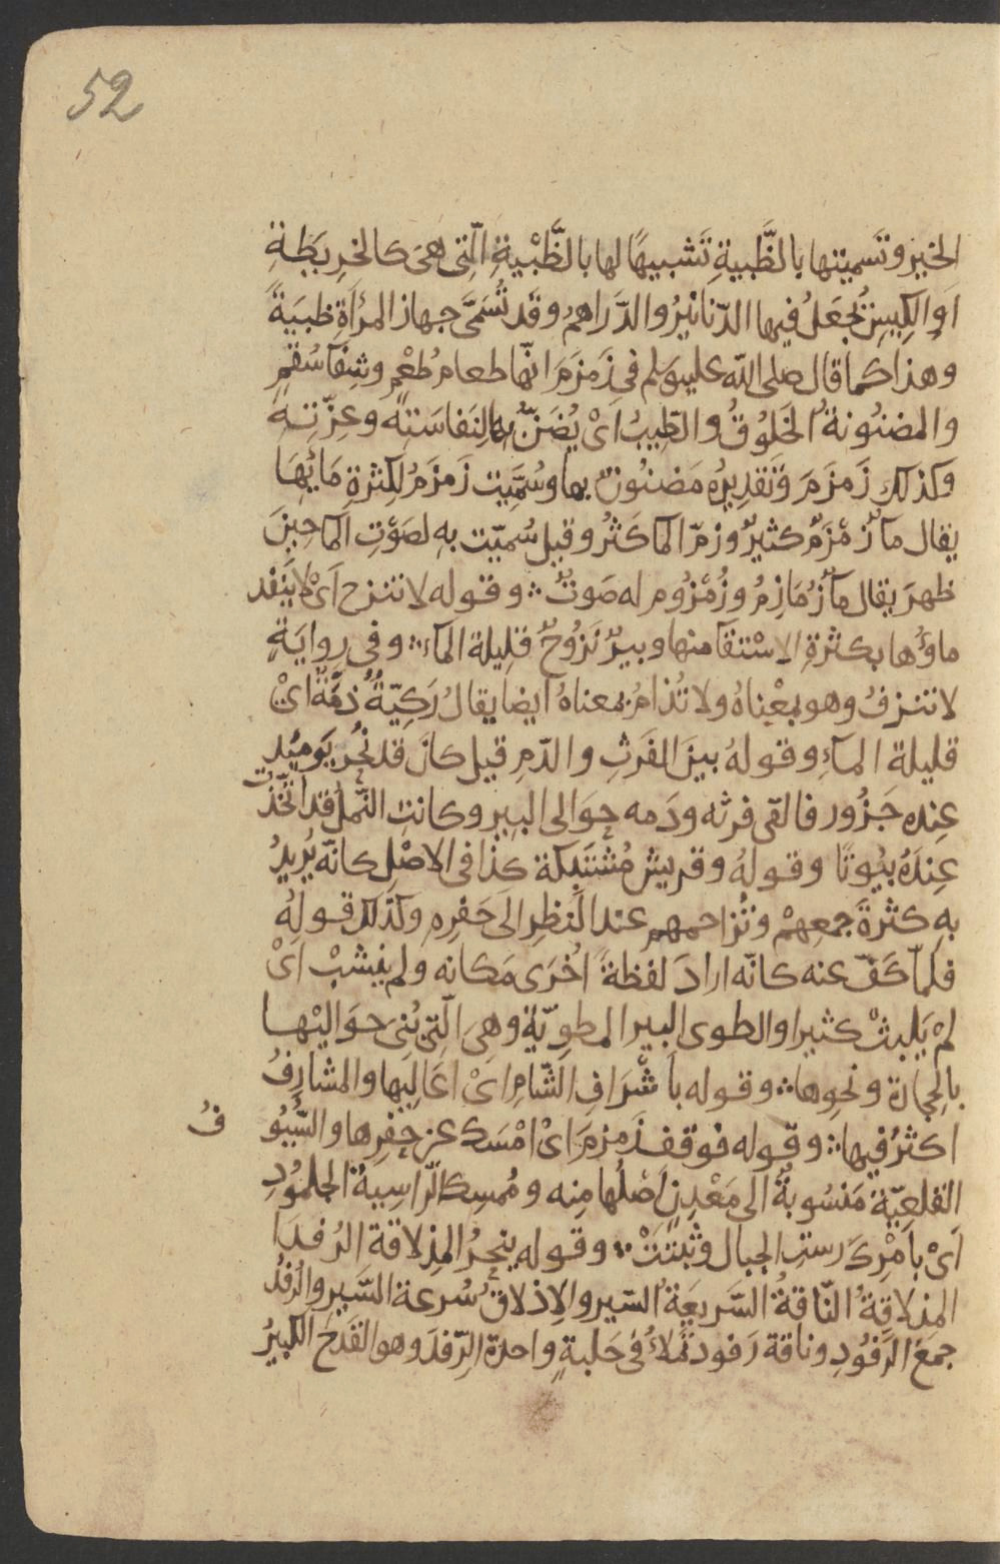 52
الخير وتسميتها بالظَّبيةِ تَشبيهًا لها بالظَّبْيةِ الّتى هىَ كالخرِيطةِ
اَوِ الكِيسِ تُجعَلُ فيها الدّنانيرُ والدَّراهمُ وقد تُسَمَّى جهاز المرأةِ ظبيَةً
وهذا كما قال صلى اللّه عليه وسلم فى زَمزَمَ انّها طعام طُعْمٍ وشِفآ سُقمٍ
والمضنُونةُ الخَلُوقُ والطِيبُ اىْ يُضَنّ بها لنَفاسَته وعِزّتهِ
وكذلك زَمزَمَ وتَقدِيرهُ مَضنُونٌ بها وسُمِّيت زَمزَمُ لكثرةِ مَائِهَا
يقال مآ زمْزَمٌ كثيرٌ وزمّ المآ كَثُر وقيل سُميّت بهِ لصَوْتِ المآ حِينَ
ظهرَ يقال مآ زُمَازِمُ وزُمْزُوم له صَوتٌ ؞ وقوله لا تنزح اَىْ لا يَنْفد
ماؤُها بكثرةِ الاسْتقآ منها وبيرٌ نَزُوحٌ قليلة المآء ؞ وفى رِوايَةٍ
لا تنزفُ وهو بمعْناهُ ولا تُذَامُ بمعناهُ ايضا يقالُ رَكيّةٌ ذمَّةٌ اىْ
قليلة المآءِ وقولهُ بينَ الفَرثِ والدّمِ قيل كانَ قد نُحِر يَوميُذٍ
عِنده جَزُور فالقى فرثه ودَمه حوَالى البير وكانتِ النَّملُ قد اتّخَذَت
عِندَهُ بيُوتًا وقولهُ وقريش مُشْتَبكة كذا فى الاصْلِ كانّه يُريدُ
به كثرةَ جمعِهمْ وتَزاحمهم عند النظِرِ الى حَفرِهِ وكذلك قولهُ
فلمّا كَفّ عنه كانّه ارادَ لفظةً اخرَى مَكانه ولم ينشَبْ اىْ
لمْ يَلبثْ كثيرا والطوى البير المطويّة وهىَ الّتِى بُنى حوَاليْها
بالحِجارة ونحوِها ؞ وقوله باَشْرَافِ الشّامِ اىْ اعَالِيها والمشارِفُ
اكثرُ فيها ؞ وقوله فوقف زمزمَ اىْ امْسَك عن حفرِها والسُّيُو
فُ
القلعيّة مَنسُوبةٌ الى مَعْدِنٍ اَصلُها منه ومُمسِك الرّاسِيةِ الجلمُودِ
اَىْ باَمْرِكَ رستِ الجبال وثبَتَتْ ؞ وقوله ينحرُ المِذلاقة الرُفدا
المذلاقةُ النّاقةُ السَّريعَةُ السّير والاذلاقُ سُرعة السَّير والرُفدُ
جمَعُ الرَّفُودِ وناقة رَفود تملأُ فى حَلبةٍ واحدة الرّفدَ وهو القدَحُ الكبيرُ